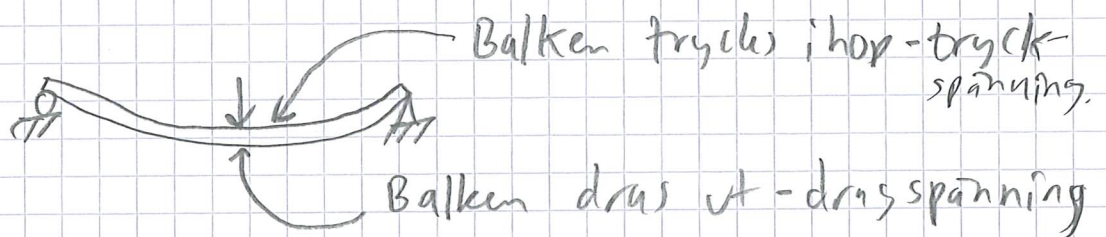 Balken trycks ihop - tryck-
spänning.
Balken dras ut - dragspänning